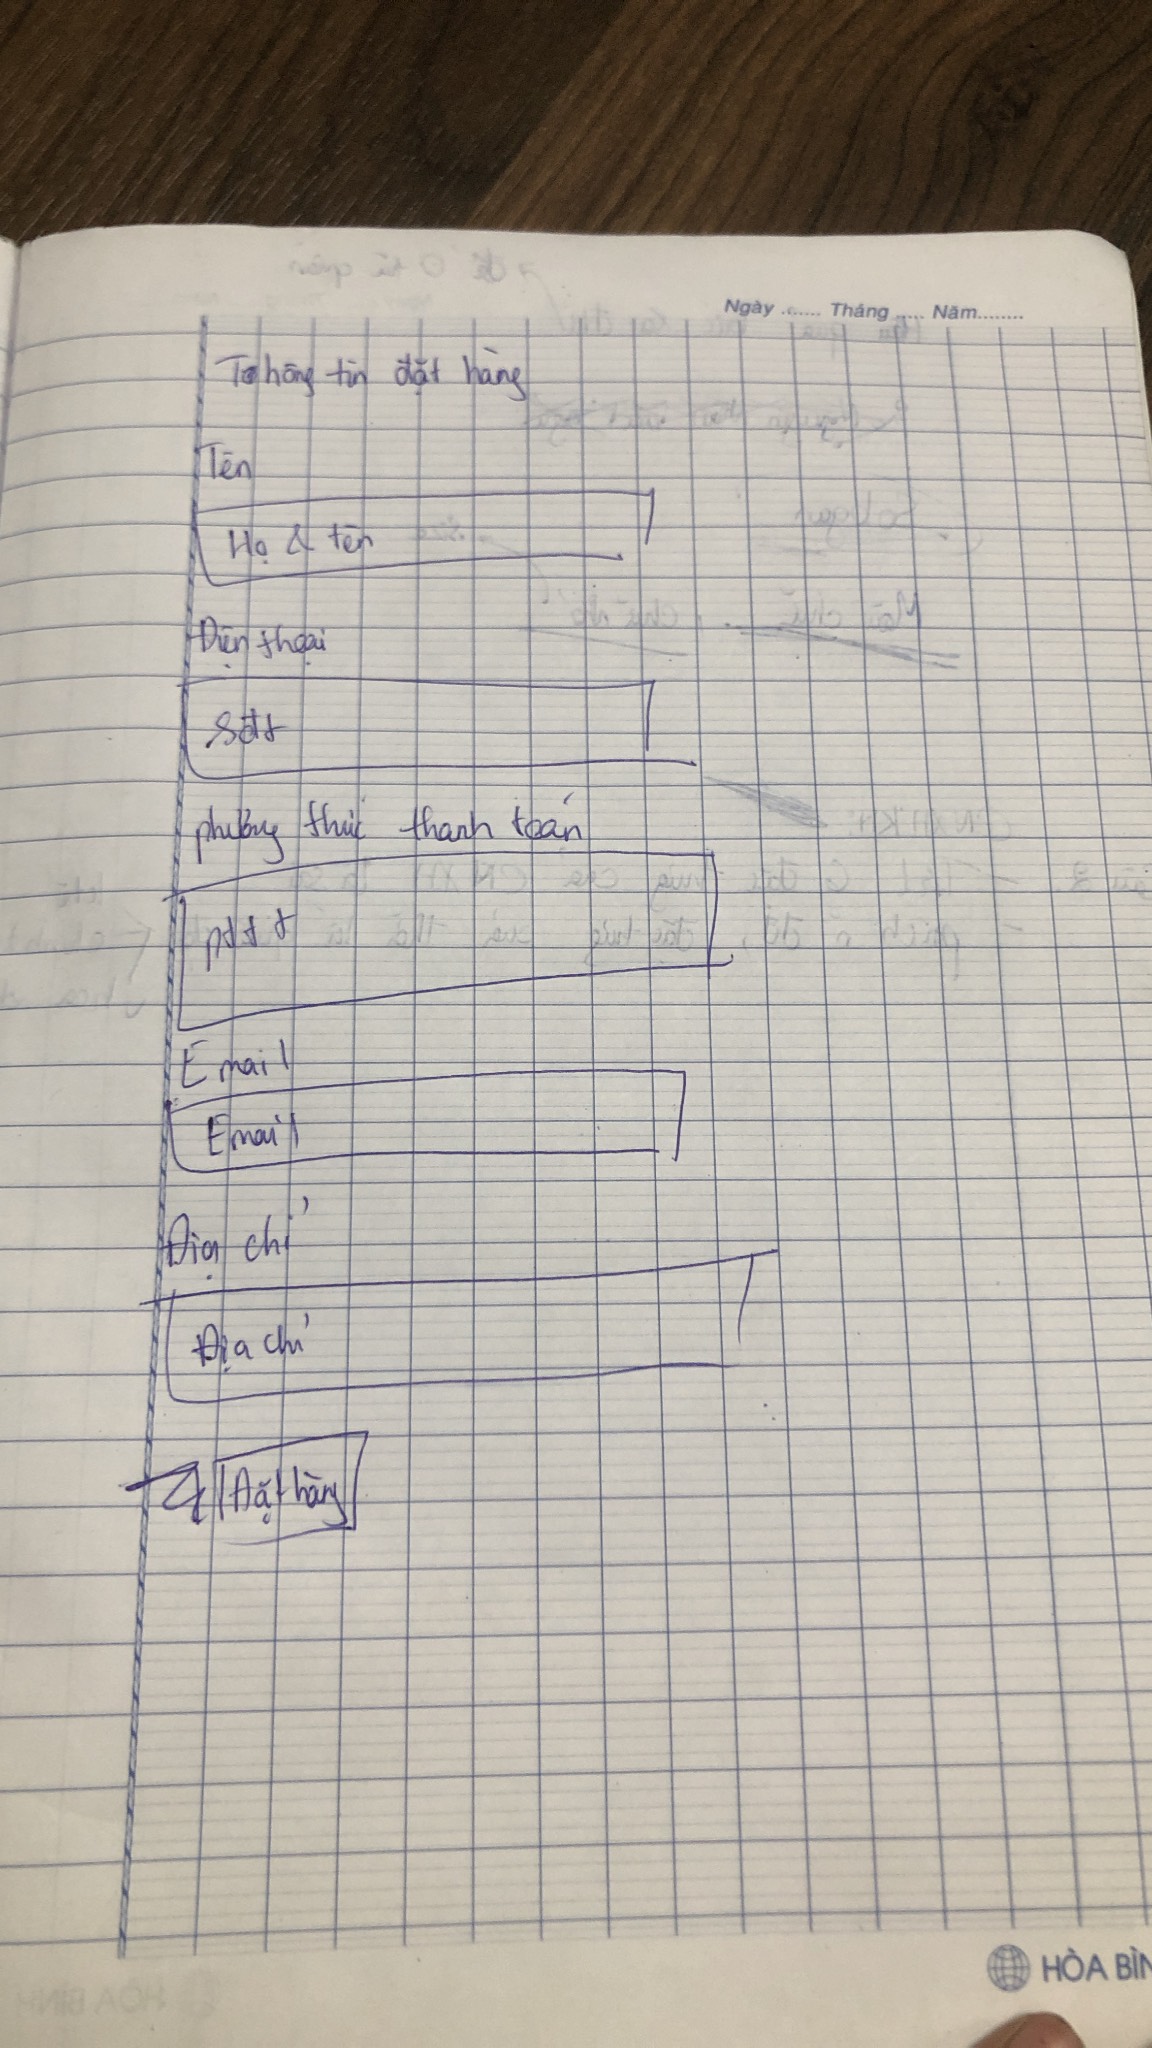 Ngày ....... Tháng ..... Năm........
Thông tin đặt hàng
Tên
Họ & tên
Điện thoại
Sđt
phương thức thanh toán
pttt
Email
Email
Địa chỉ
Địa chỉ
Đặt hàng
HÒA BÌN